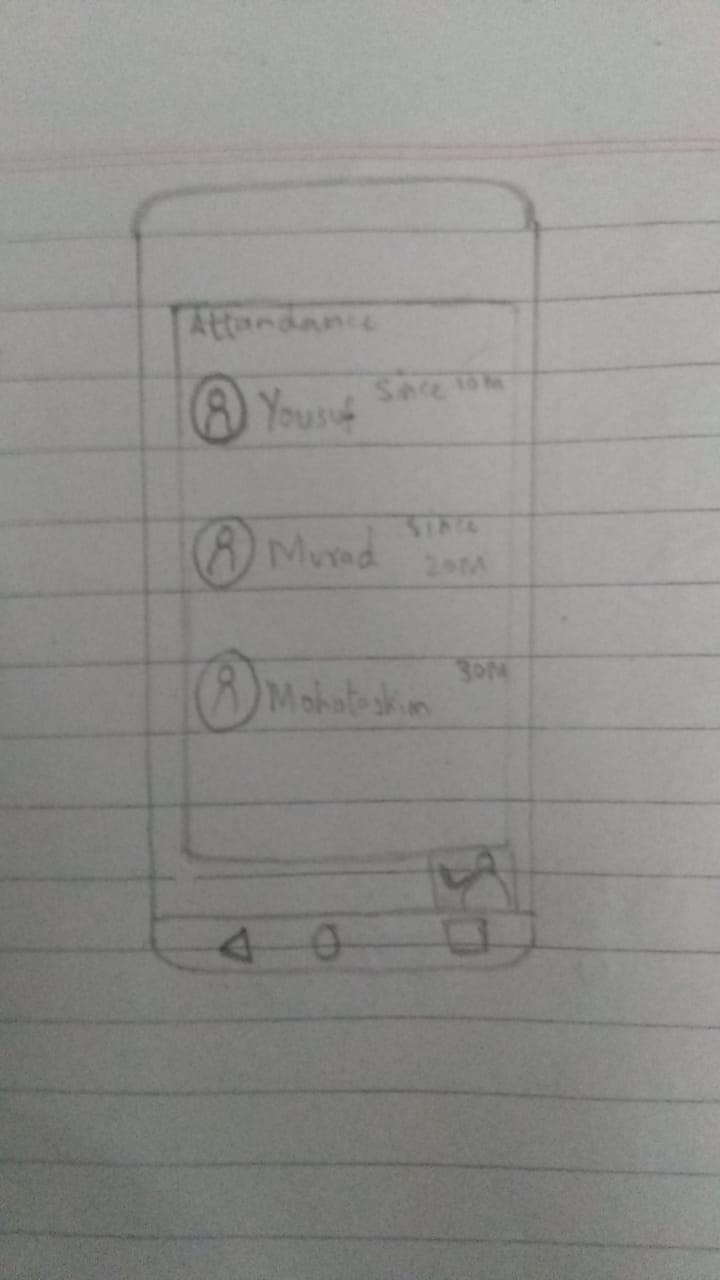 Attandance
Yousuf since 10m
Murad since
20M
Mohotaskim 30M